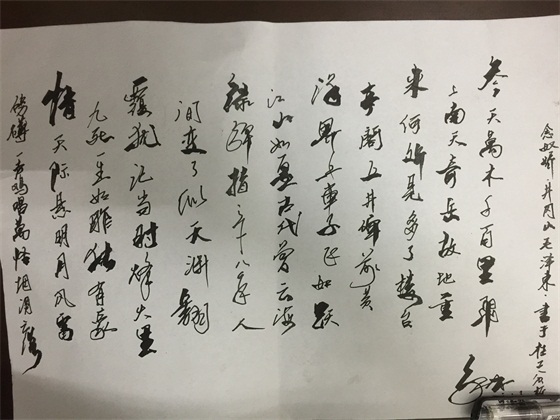 念奴娇 井冈山 毛泽东·书于桂工
参天萬木千百里飞
上南天奇岳故地重
来何所见多了楼台
亭阁五井碑前黄
洋界上車子飞如跃
江山如画古代曾云海
绿弹指三十八年人
间变了似天渊翻
覆犹记当时烽火里
九死一生如昨独有豪
情天际悬明月风雷
磅礴一声鸡唱萬怪烟消云落